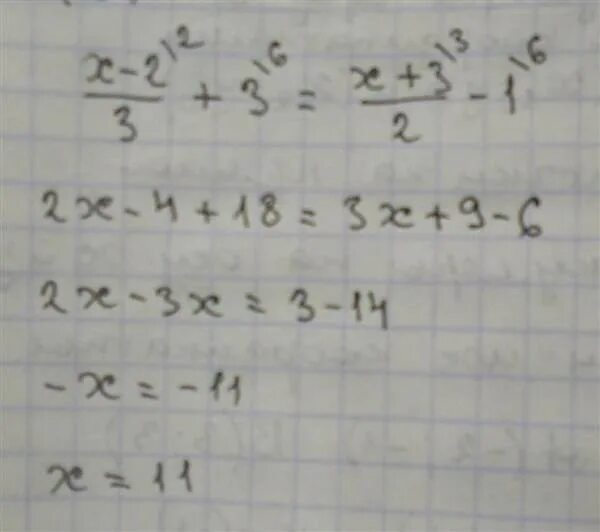 (x-2)/3 \2 + 3 \6 = (x+3)/2 \3 - 1 \6
2x - 4 + 18 = 3x + 9 - 6
2x - 3x = 3 - 14
-x = -11
x = 11